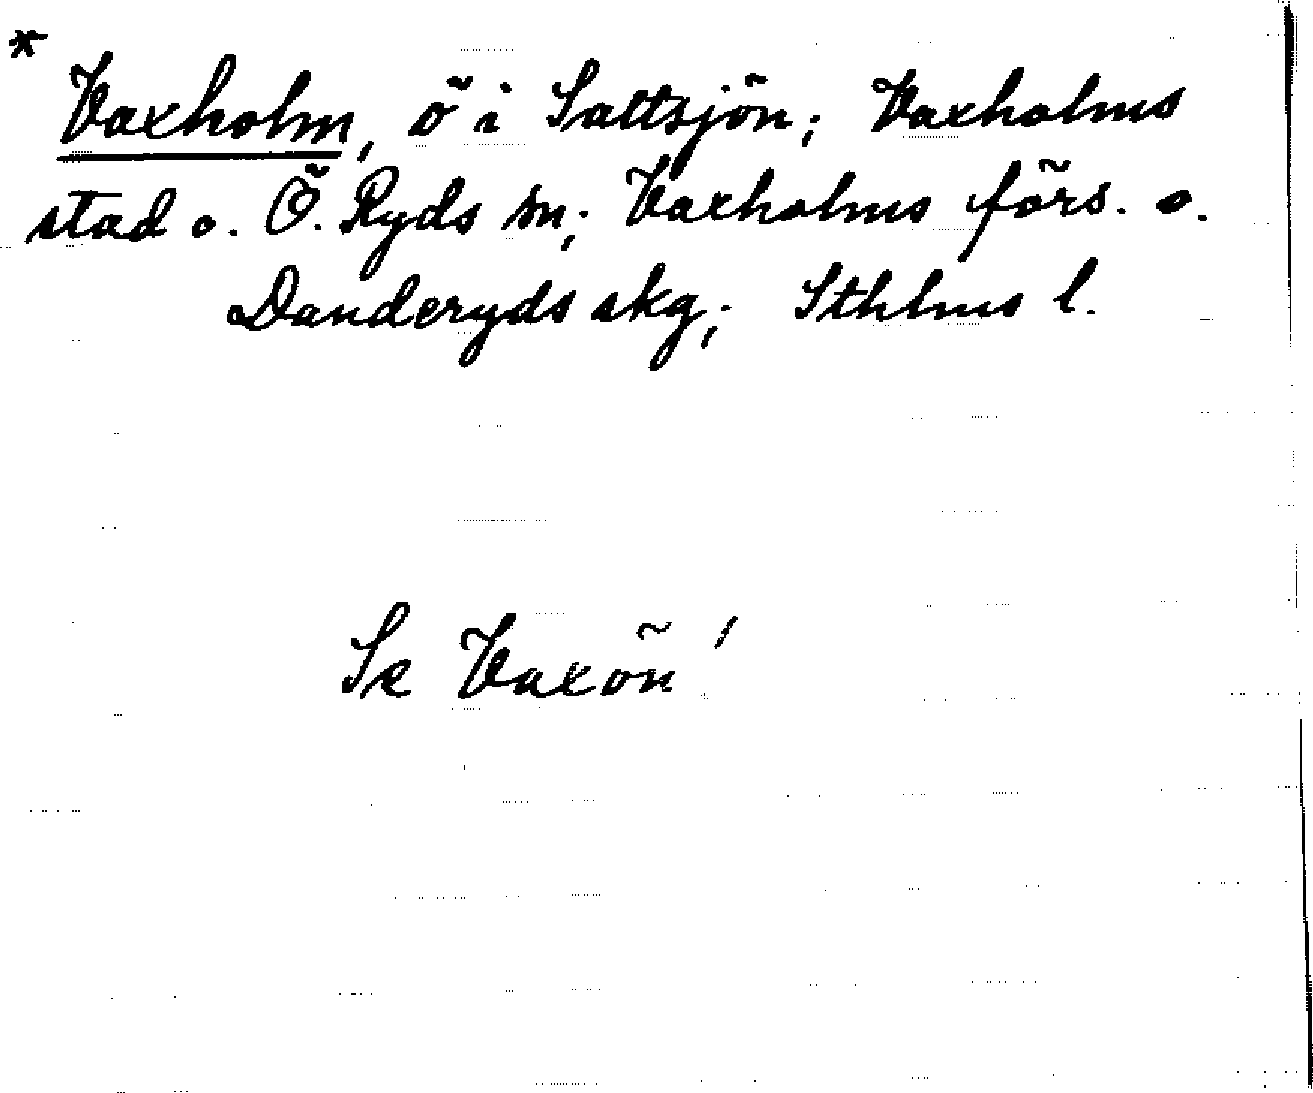 *
Vaxholm, ö i Saltsjön; Vaxholms
stad o. Ö. Ryds sn; Vaxholms förs. o.
Danderyds skg; Sthlms l.
Se Vaxön!